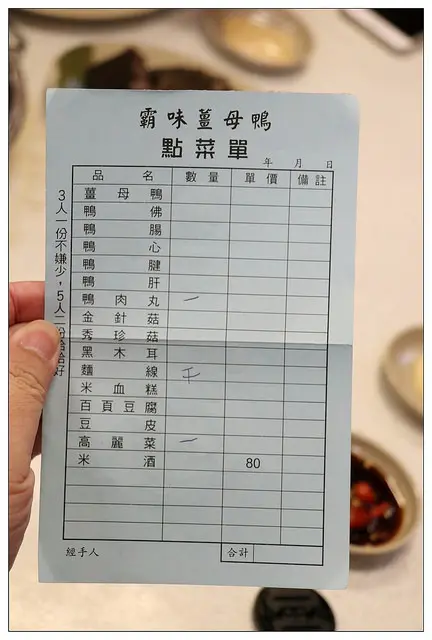 霸味薑母鴨
點菜單
年 月 日
品名 數量 單價 備註
薑母鴨
鴨佛
鴨腸
鴨心
鴨腱
鴨肝
鴨肉丸 一
金針菇
秀珍菇
黑木耳
麵線
米血糕
百頁豆腐
豆皮
高麗菜 一
米酒 80
經手人 合計
3人一份不嫌少，5人一份恰恰好